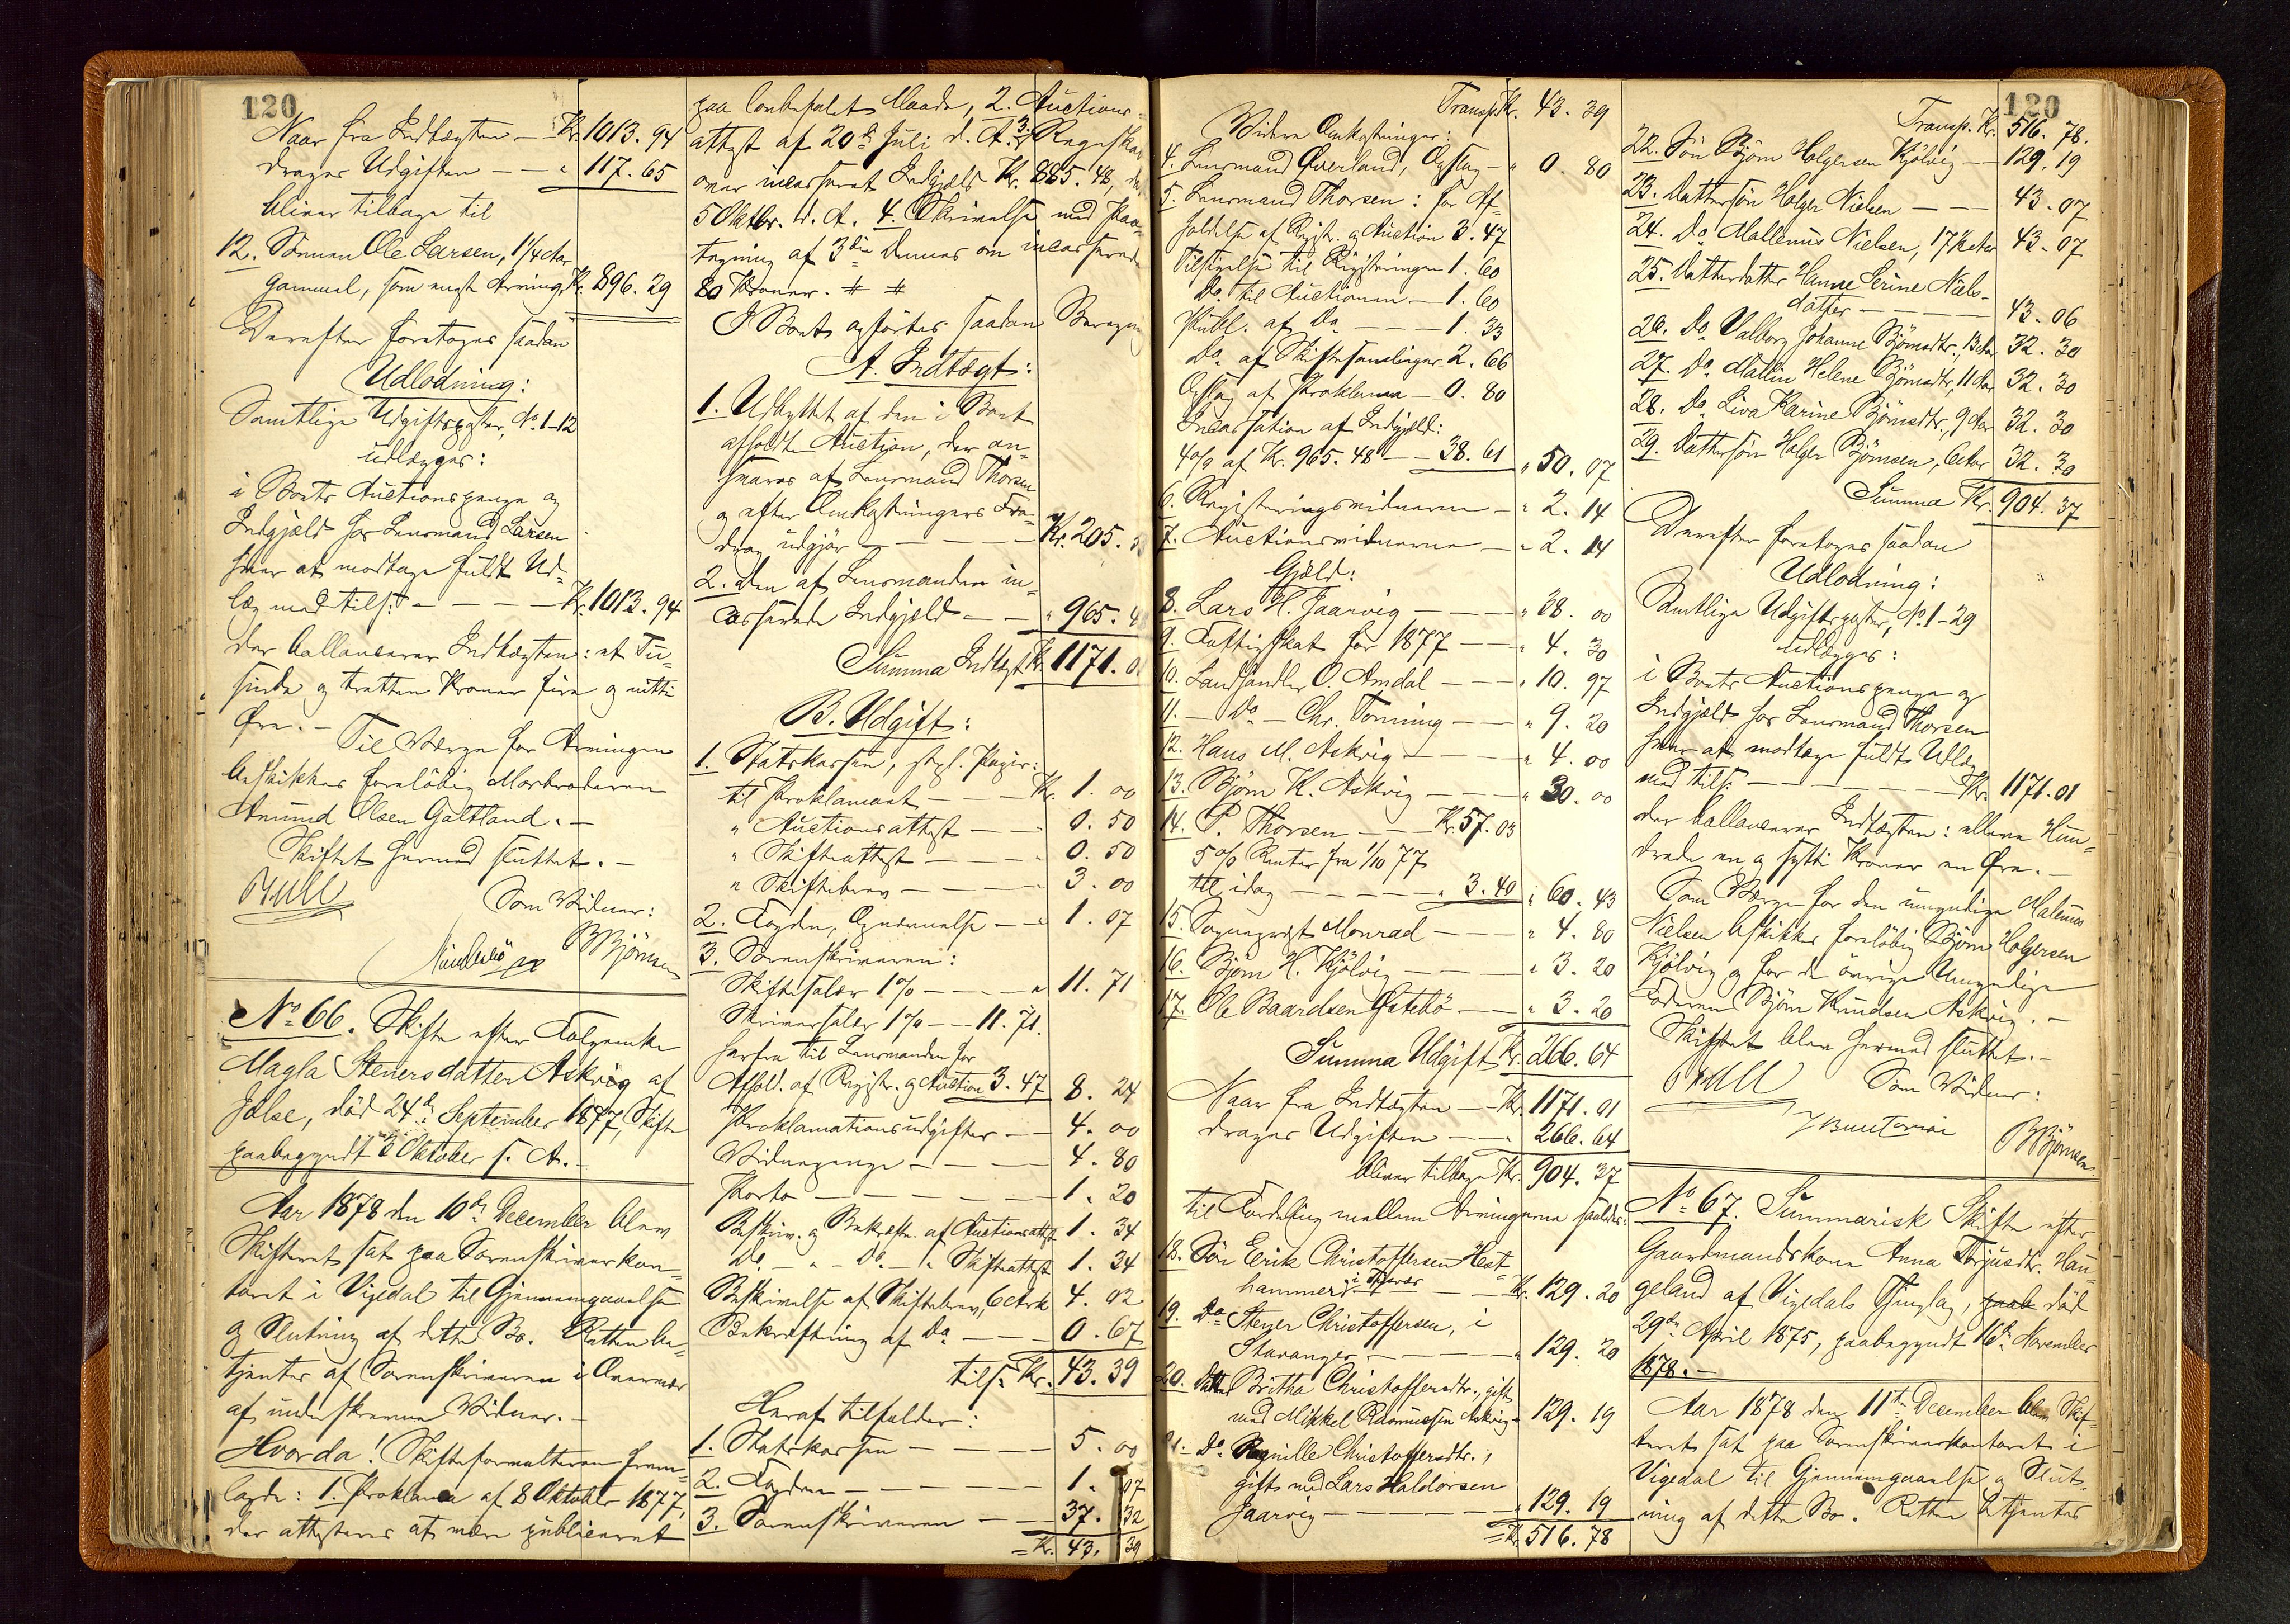 120
Naar fra Indtægten — Kr. 1013. 94
drages Udgiften — — " 117. 65
bliver tilbage til
12. Sønnen Ole Larsen, 1 1/4 Aar
gammel, som eneste Arving, Kr. 896. 29
Derefter foretoges saadan
Udlodning:
Samtlige Udgiftsposter, No. 1-12
udlægges:
i Boets Auctionspenge og
Indgjæld hos Lensmand Larsen
hvor at modtage fuldt Ud-
læg med tils: — — — Kr. 1013. 94
der ballancerer Indtægten: et Tu-
sinde og tretten Kroner fire og nitti
Øre. —
Til Værge for Arvingen
beskikkes foreløbig Morbroderen
Amund Olsen Galtland. —
Skiftet hermed sluttet. —
Bull
Som Vidner:
BBjörnsen
No. 66. Skifte efter Føgeenke
Magla Stenersdatter Askvig af
Jelse, død 24de September 1877, Skifte
paabegyndt 3 Oktober s. A. —
Aar 1878 den 10de December blev
Skifteret sat paa Sorenskriverkon-
toret i Vigedal til Gjennemgaaelse
og Slutning af dette Bo. Retten be-
tjentes af Sorenskriveren i Overvær
af underskrevne Vidner. —
Hvorda! Skifteforvalteren frem-
lagde: 1. Proklama af 8 Oktober 1877,
der attesteres at være publiceret
paa lovbefalet Maade, 2. Auctions-
attest af 20de Juli d. A. 3. Regnskab
over incasseret Indgjæld Kr. 885. 48,
5 Oktbr. d. A. 4. Skrivelse med Paa-
tegning af 3die Dennes om incasserede
80 Kroner. # #
I Boet opførtes saadan Beregning
A. Indtægt:
1. Udbyttet af den i Boet
afholdte Auction, der an-
svares af Lensmand Thorsen
og efter Omkostningers Fra-
drag udgjør — — — Kr. 205.
2. Den af Lensmanden in-
casserede Indgjæld — — " 965. 4
Summa Indtægt Kr. 1171. 0
B. Udgift:
1. Statskassen, stpl. Papir:
til Proklamaet — — — Kr. 1. 00
" Auctionsattest — — " 0. 50
" Skifteattest — — — " 0. 50
" Skiftebrev — — — " 3. 00
2. Fogden, Opnævnelse — " 1. 07
3. Sorenskriveren:
Skiftesalær 1% — — — " 11. 71
Skriversalær 1% — — 11. 71.
herfra til Lensmanden for
Afhold. af Registr. og Auction 3. 47 8. 24
Proklamationsudgifter — — 4. 00
Vidnepenge — — — — 4. 80
Porto — — — — — 1. 20
Beskriv. og Bekræftn. af Auctionsattest 1. 34
Do. — " — Do. — " Skifteattest 1. 34
Beskrivelse af Skiftebrev, 6 Ark 4. 02
Bekræftning af Do. — — — 0. 67
tils. Kr. 43. 39
Heraf tilfalder:
1. Statskassen — — — — 5. 00
2. Fogden — — — — — 1. 07
3. Sorenskriveren — — — 37. 32
= Kr. 43. 39
Transp. Kr. 43. 39
Videre Omkostninger:
4. Lensmand Qverland, Opslag — " 0. 80
5. Lensmand Thorsen: for Af-
holdelse af Registr. og Auction 3. 47
Tilsigelse til Registreringen 1. 60
Do. til Auctionen — 1. 60
Publ. af Do. — — — 1. 33
Do. af Skiftesamlinger 2. 66
Opslag af Proklama — 0. 80
Incassation af Indgjæld:
4% af Kr. 965. 48 — — 38. 61 " 50. 07
6. Registeringsvidnerne — " 2. 14
7. Auctionsvidnerne — " 2. 14
Gjæld:
8. Lars H. Jaarvig — — — " 38. 00
9. Fattigskat for 1877 — — " 4. 30
10. Landhandler O. Amdal — — " 10. 97
11. — Do — Chr. Tonning — — " 9. 20
12. Hans M. Askvig — — — " 4. 00
13. Bjørn K. Askvig — — — " 30. 00
14. P. Thorsen — — Kr. 57. 03
5% Renter fra 1/10 77
til idag — — — " 3. 40 " 60. 43
15. Sogneprest Monrad — — — " 4. 80
16. Bjørn H. Kjölvig — — — " 3. 20
17. Ole Baardsen Østebö — — " 3. 20
Summa Udgift Kr. 266. 64
Naar fra Indtægten — Kr. 1171. 01
drages Udgiften — — " 266. 64
bliver tilbage Kr. 904. 37
til Fordeling mellem Arvingerne saaledes:
18. Søn Eerik Christoffersen Hest-
hammer, i Tysvær — — Kr. 129. 20
19. Do. Stener Christoffersen, i
Stavanger — — — — " 129. 20
20. Datter Britha Christoffersdtr., gift
med Mikkel Rasmussen Askvig " 129. 19
21. Do. Ragnille Christoffersdtr.,
gift med Lars Haldorsen
Jaarvig — — — — — " 129. 19
= Kr. 516. 78
120
Transp. Kr. 516. 78.
22. Søn Bjørn Holgersen Kjölvig — — 129. 19
23. Dattersøn Holger Nielsen — — — 43. 07
24. Do. Mallenus Nielsen, 17 1/2 Aar 43. 07
25. Datterdatter Hanne Serine Niels-
datter — — — — 43. 06
26. Do. Valborg Johanne Bjørnsdtr., 13 Aar 32. 30
27. Do. Mallin Helene Bjørnsdtr., 11 Aar 32. 30
28. Do. Liva Karine Bjørnsdtr., 9 Aar 32. 30
29. Dattersøn Holger Bjørnsen, 6 Aar 32. 30
Summa Kr. 904. 37
Derefter foretoges saadan
Udlodning:
Samtlige Udgiftsposter, No. 1-29
udlægges:
i Boets Auctionspenge og
Indgjæld hos Lensmand Thorsen
hvor at modtage fuldt Udlæg
med tils: — — — — — Kr. 1171. 01
der ballancerer Indtægten: elleve Hun-
drede en og sytti Kroner en Øre. —
Som Værge for den umyndige Malenus
Nielsen beskikkes foreløbig Bjørn Holgersen
Kjölvig og for de øvrige Umyndige
Faderen Bjørn Knudsen Askvig. —
Skiftet blev hermed sluttet. —
Bull
Som Vidner:
BBjörnsen
No. 67. Summarisk Skifte efter
Gaardmandskone Anna Torjusdtr. Hau-
geland af Vigedals Thinglag, paab død
29de April 1875, paabegyndt 16de November
1878. —
Aar 1878 den 11te December blev Skif-
teret sat paa Sorenskriverkontoret i
Vigedal til Gjennemgaaelse og Slut-
ning af dette Bo. Retten betjentes